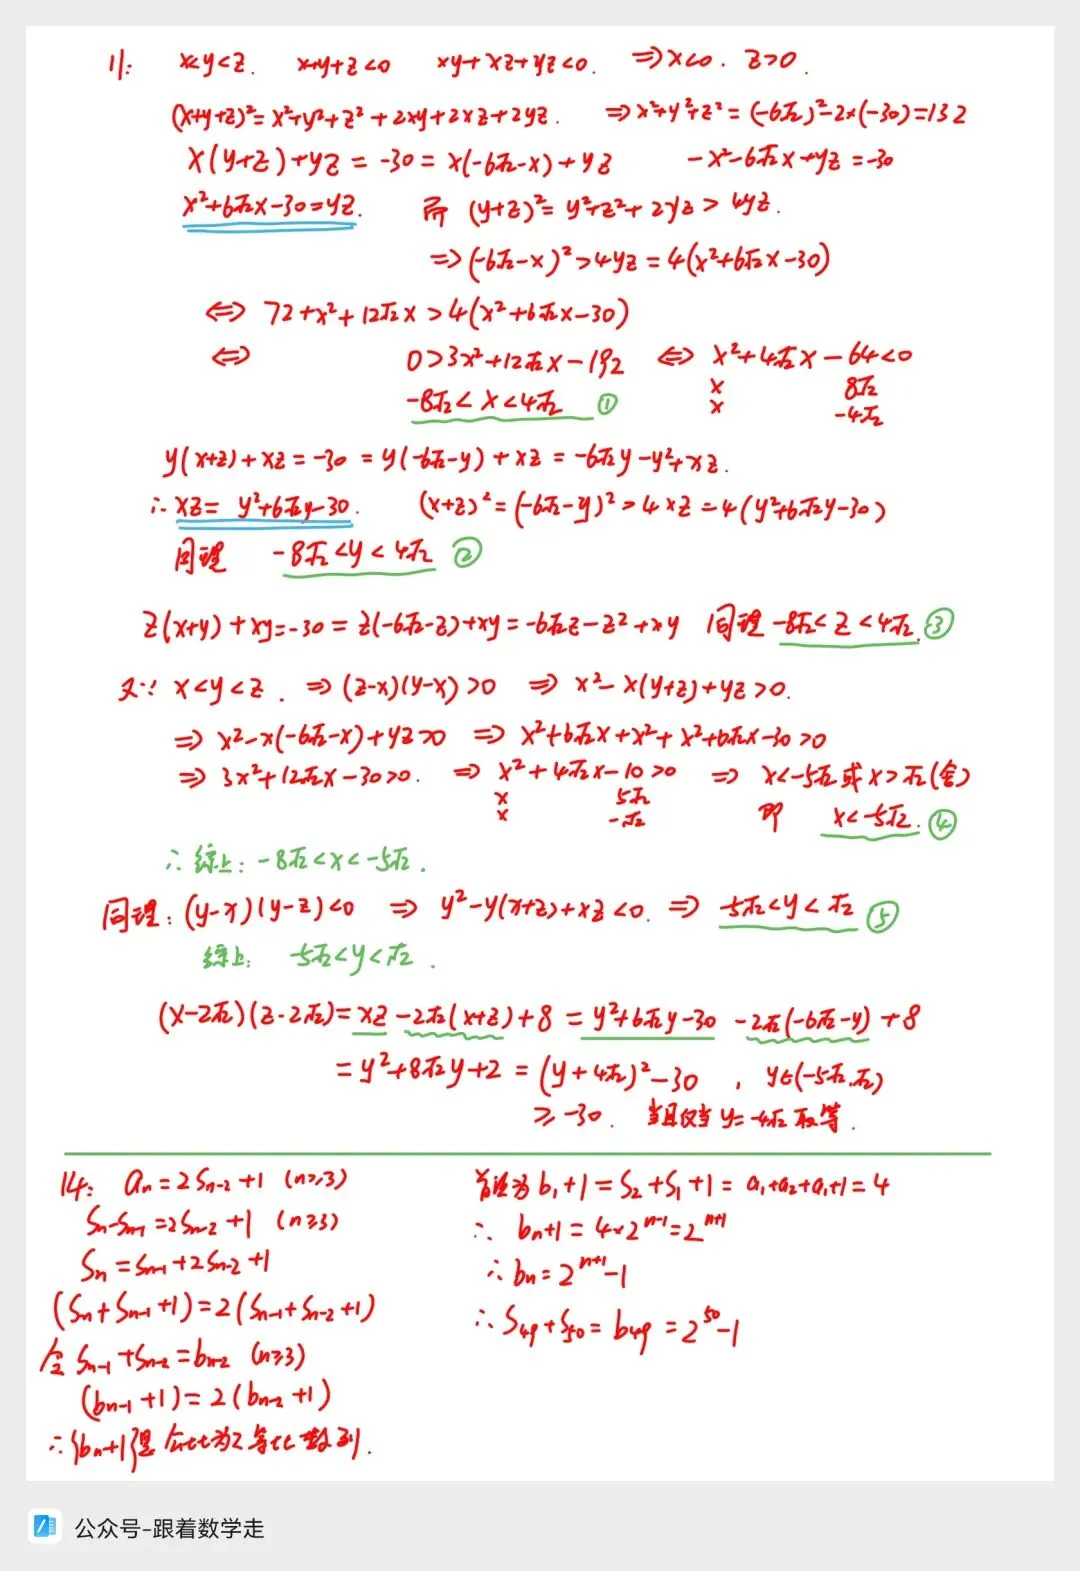 11: x<y<z. x+y+z<0 xy+xz+yz<0. ⇒x<0. z>0.
(x+y+z)²=x²+y²+z²+2xy+2xz+2yz. ⇒x²+y²+z²=(-6√2)²-2×(-30)=132
x(y+z)+yz=-30=x(-6√2-x)+yz -x²-6√2x+yz=-30
x²+6√2x-30=yz. 而 (y+z)²=y²+z²+2yz>4yz.
⇒(-6√2-x)²>4yz=4(x²+6√2x-30)
⇔ 72+x²+12√2x>4(x²+6√2x-30)
⇔ 0>3x²+12√2x-192 ⇔ x²+4√2x-64<0
x 8√2
-8√2<x<4√2 ① x -4√2
y(x+z)+xz=-30=y(-6√2-y)+xz=-6√2y-y²+xz.
∴xz=y²+6√2y-30. (x+z)²=(-6√2-y)²>4xz=4(y²+6√2y-30)
同理 -8√2<y<4√2 ②
z(x+y)+xy=-30=z(-6√2-z)+xy=-6√2z-z²+xy 同理 -8√2<z<4√2. ③
又∵ x<y<z. ⇒(z-x)(y-x)>0 ⇒ x²-x(y+z)+yz>0.
⇒ x²-x(-6√2-x)+yz>0 ⇒ x²+6√2x+x²+x²+6√2x-30>0
⇒ 3x²+12√2x-30>0. ⇒ x²+4√2x-10>0 ⇒ x<-5√2或x>√2(舍)
x 5√2
x -√2 即 x<-5√2. ④
∴综上: -8√2<x<-5√2.
同理: (y-x)(y-z)<0 ⇒ y²-y(x+z)+xz<0. ⇒ -5√2<y<√2 ⑤
综上: -5√2<y<√2.
(x-2√2)(z-2√2)=xz-2√2(x+z)+8=y²+6√2y-30-2√2(-6√2-y)+8
=y²+8√2y+2=(y+4√2)²-30, y∈(-5√2,√2)
≥-30. 当且仅当y=-4√2取等.
14: aₙ=2Sₙ₋₂+1 (n≥3)
Sₙ-Sₙ₋₁=2Sₙ₋₂+1 (n≥3)
Sₙ=Sₙ₋₁+2Sₙ₋₂+1
(Sₙ+Sₙ₋₁+1)=2(Sₙ₋₁+Sₙ₋₂+1)
令Sₙ₋₁+Sₙ₋₂=bₙ₋₂ (n≥3)
(bₙ₋₁+1)=2(bₙ₋₂+1)
∴{bₙ+1}是公比为2等比数列.
首项为b₁+1=S₂+S₁+1=a₁+a₂+a₁+1=4
∴ bₙ+1=4×2ⁿ⁻¹=2ⁿ⁺¹
∴bₙ=2ⁿ⁺¹-1
∴S₄₉+S₅₀=b₄₉=2⁵⁰-1
公众号-跟着数学走